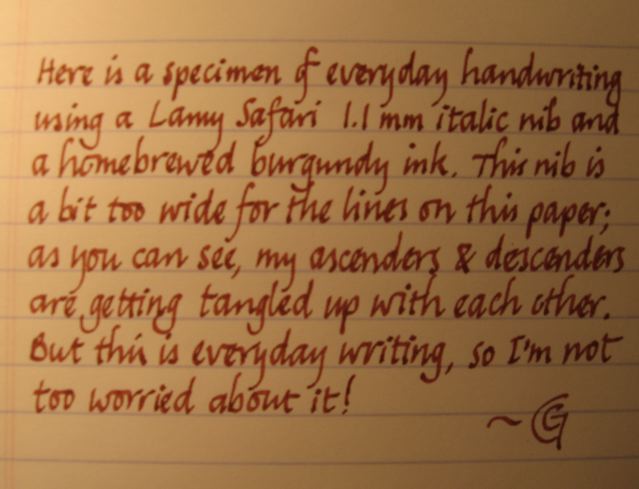 Here is a specimen of everyday handwriting
using a Lamy Safari 1.1 mm italic nib and
a homebrewed burgundy ink. This nib is
a bit too wide for the lines on this paper;
as you can see, my ascenders & descenders
are getting tangled up with each other.
But this is everyday writing, so I'm not
too worried about it!
~ G